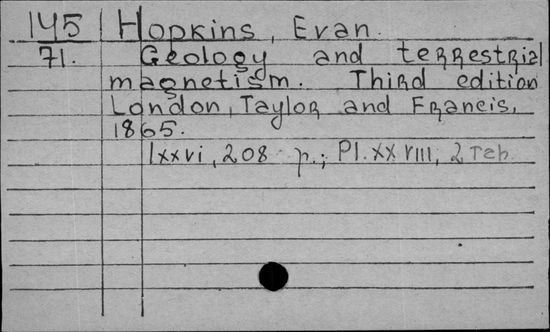 145 Hopkins, Evan.
71. Geology and terrestrial
magnetism. Third edition
London, Taylor and Francis,
1865.
lxxvi, 208 p.; Pl. XXVIII, 2 Tab.